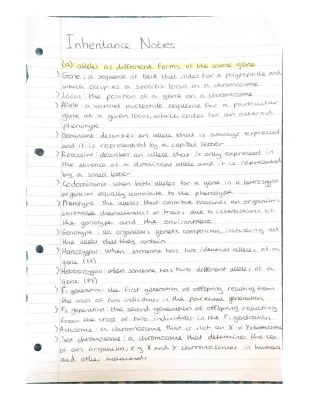 Inheritance Notes
(a) alleles as different forms of the same gene
> Gene: a sequence of DNA that codes for a polypeptide and
which occupies a specific locus on a chromosome
> Locus: the position of a gene on a chromosome
> Allele: a variant nucleotide sequence for a particular
gene at a given locus, which codes for an altered
phenotype
> Dominant: describes an allele that is always expressed
and it is represented by a capital letter
> Recessive: describes an allele that is only expressed in
the absence of a dominant allele and it is represented
by a small letter
> Codominance: when both alleles for a gene in a heterozygous
organism equally contribute to the phenotype
> Phenotype: The alleles that contribute towards an organism's
observable characteristics or traits due to interactions of
the genotype and the environment
> Genotype: an organism's genetic composition, including all
the alleles that they contain
> Homozygous: when someone has two identical alleles of a
gene (FF)
> Heterozygous: when someone has two different alleles of a
gene (Ff)
> F₁ generation: the first generation of offspring resulting
from the cross of two individuals in the parental generation
> F₂ generation: the second generation of offspring resulting
from the cross of two individuals in the F₁ generation
> Autosome: a chromosome that is not an X or Y chromosome
> Sex chromosome: a chromosome that determines the sex
of an organism, e.g. X and Y chromosomes in humans
and other mammals